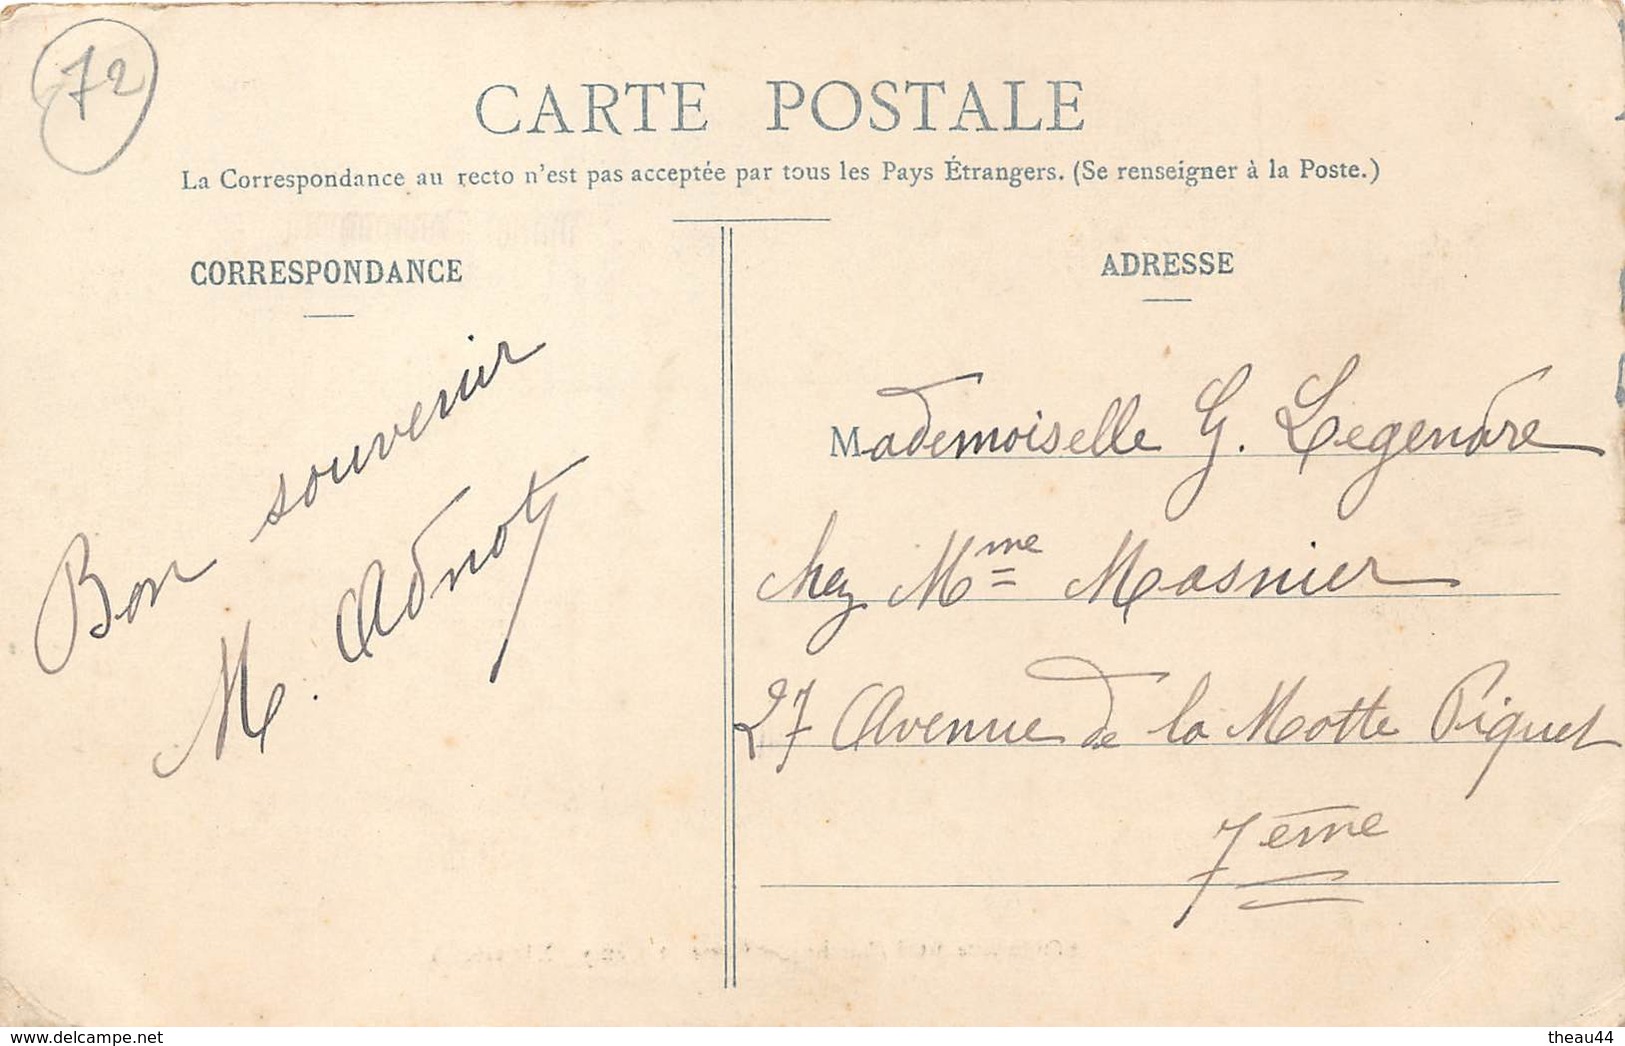 72
CARTE POSTALE
La Correspondance au recto n'est pas acceptée par tous les Pays Étrangers. (Se renseigner à la Poste.)
CORRESPONDANCE
Bon souvenir
M. Adnot
ADRESSE
Mademoiselle G. Legendre
chez Mme Masnier
27 Avenue de la Motte Piquet
7ème
www.delcampe.net
theau44